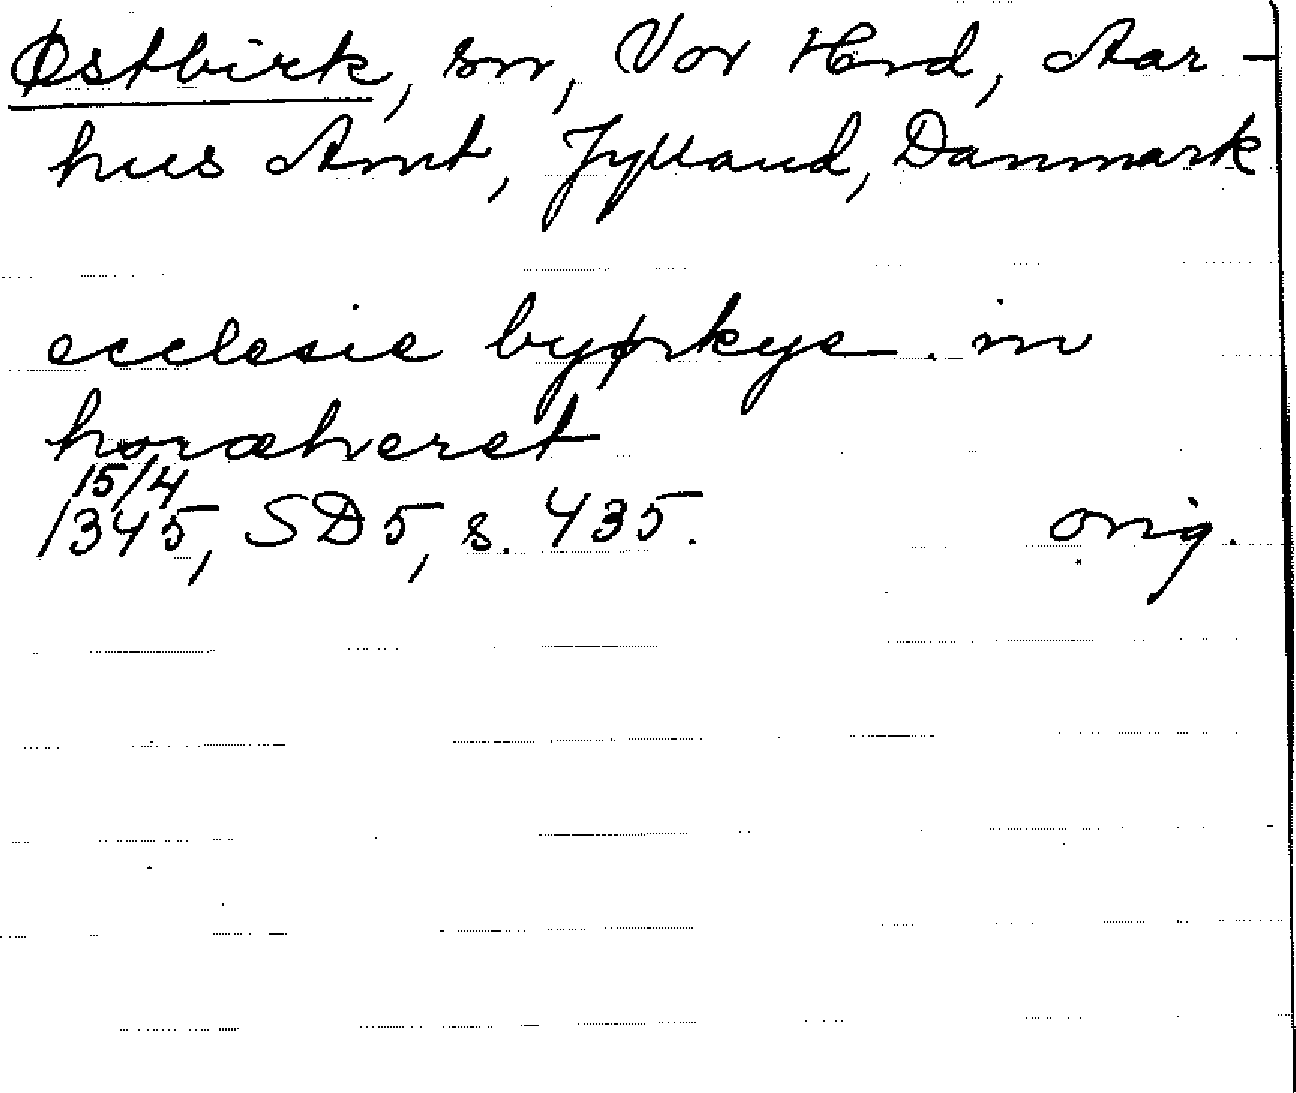 Østbirk, sn, Vor Hrd, Aar-
hus Amt, Jylland, Danmark
ecclesie byørkye. in
horæheret
15/4
1345, SD 5, s. 435. orig.